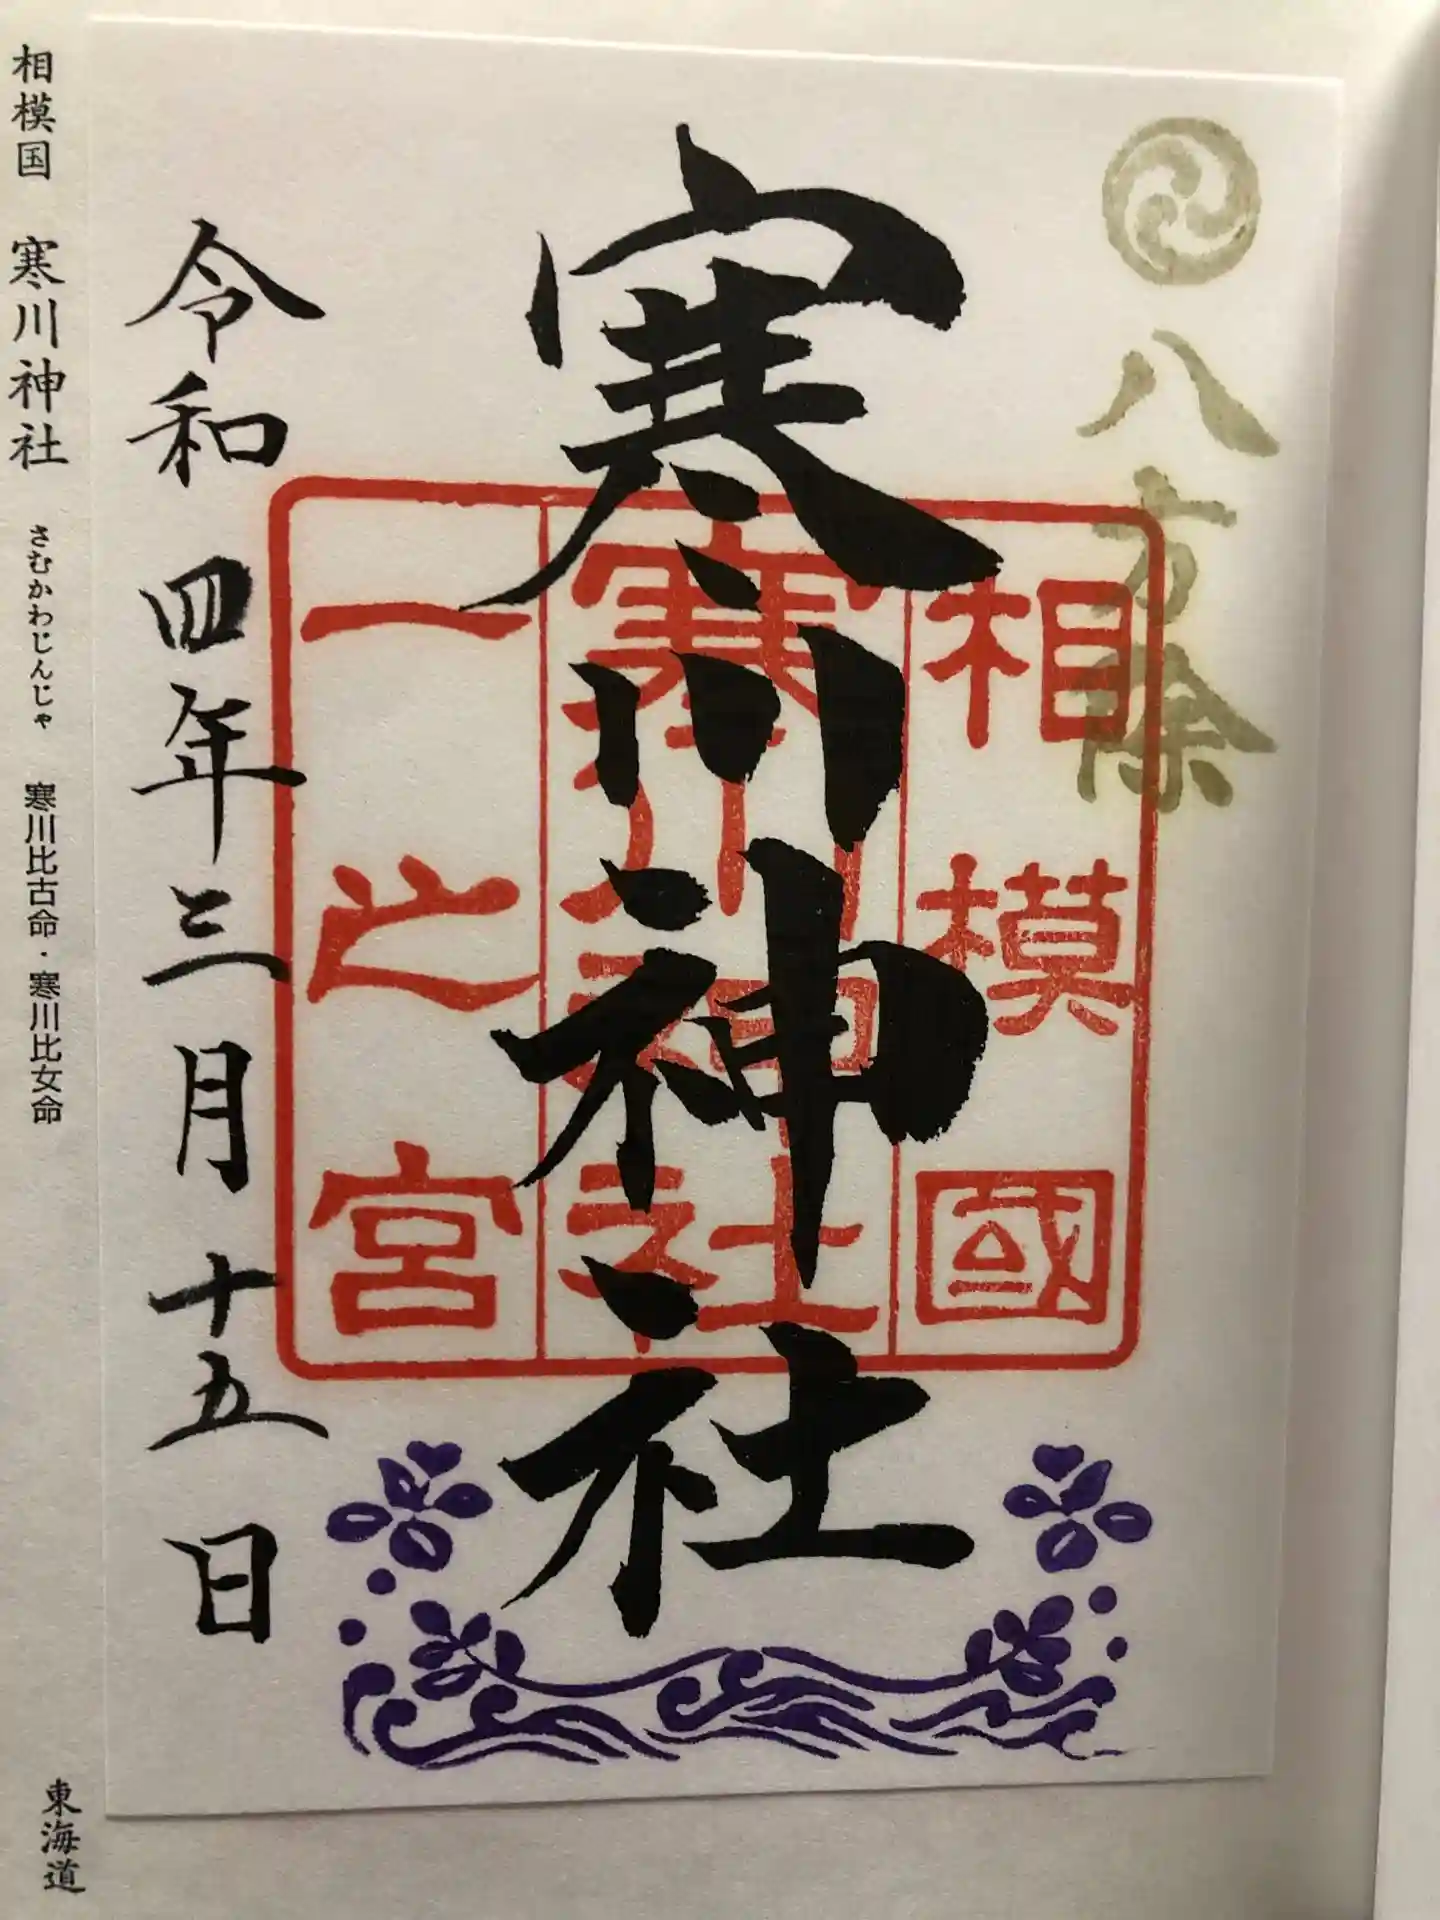 八方除
寒川神社
相模國
寒川神社
一之宮
令和四年三月十五日
相模国 寒川神社 さむかわじんじゃ 寒川比古命・寒川比女命
東海道